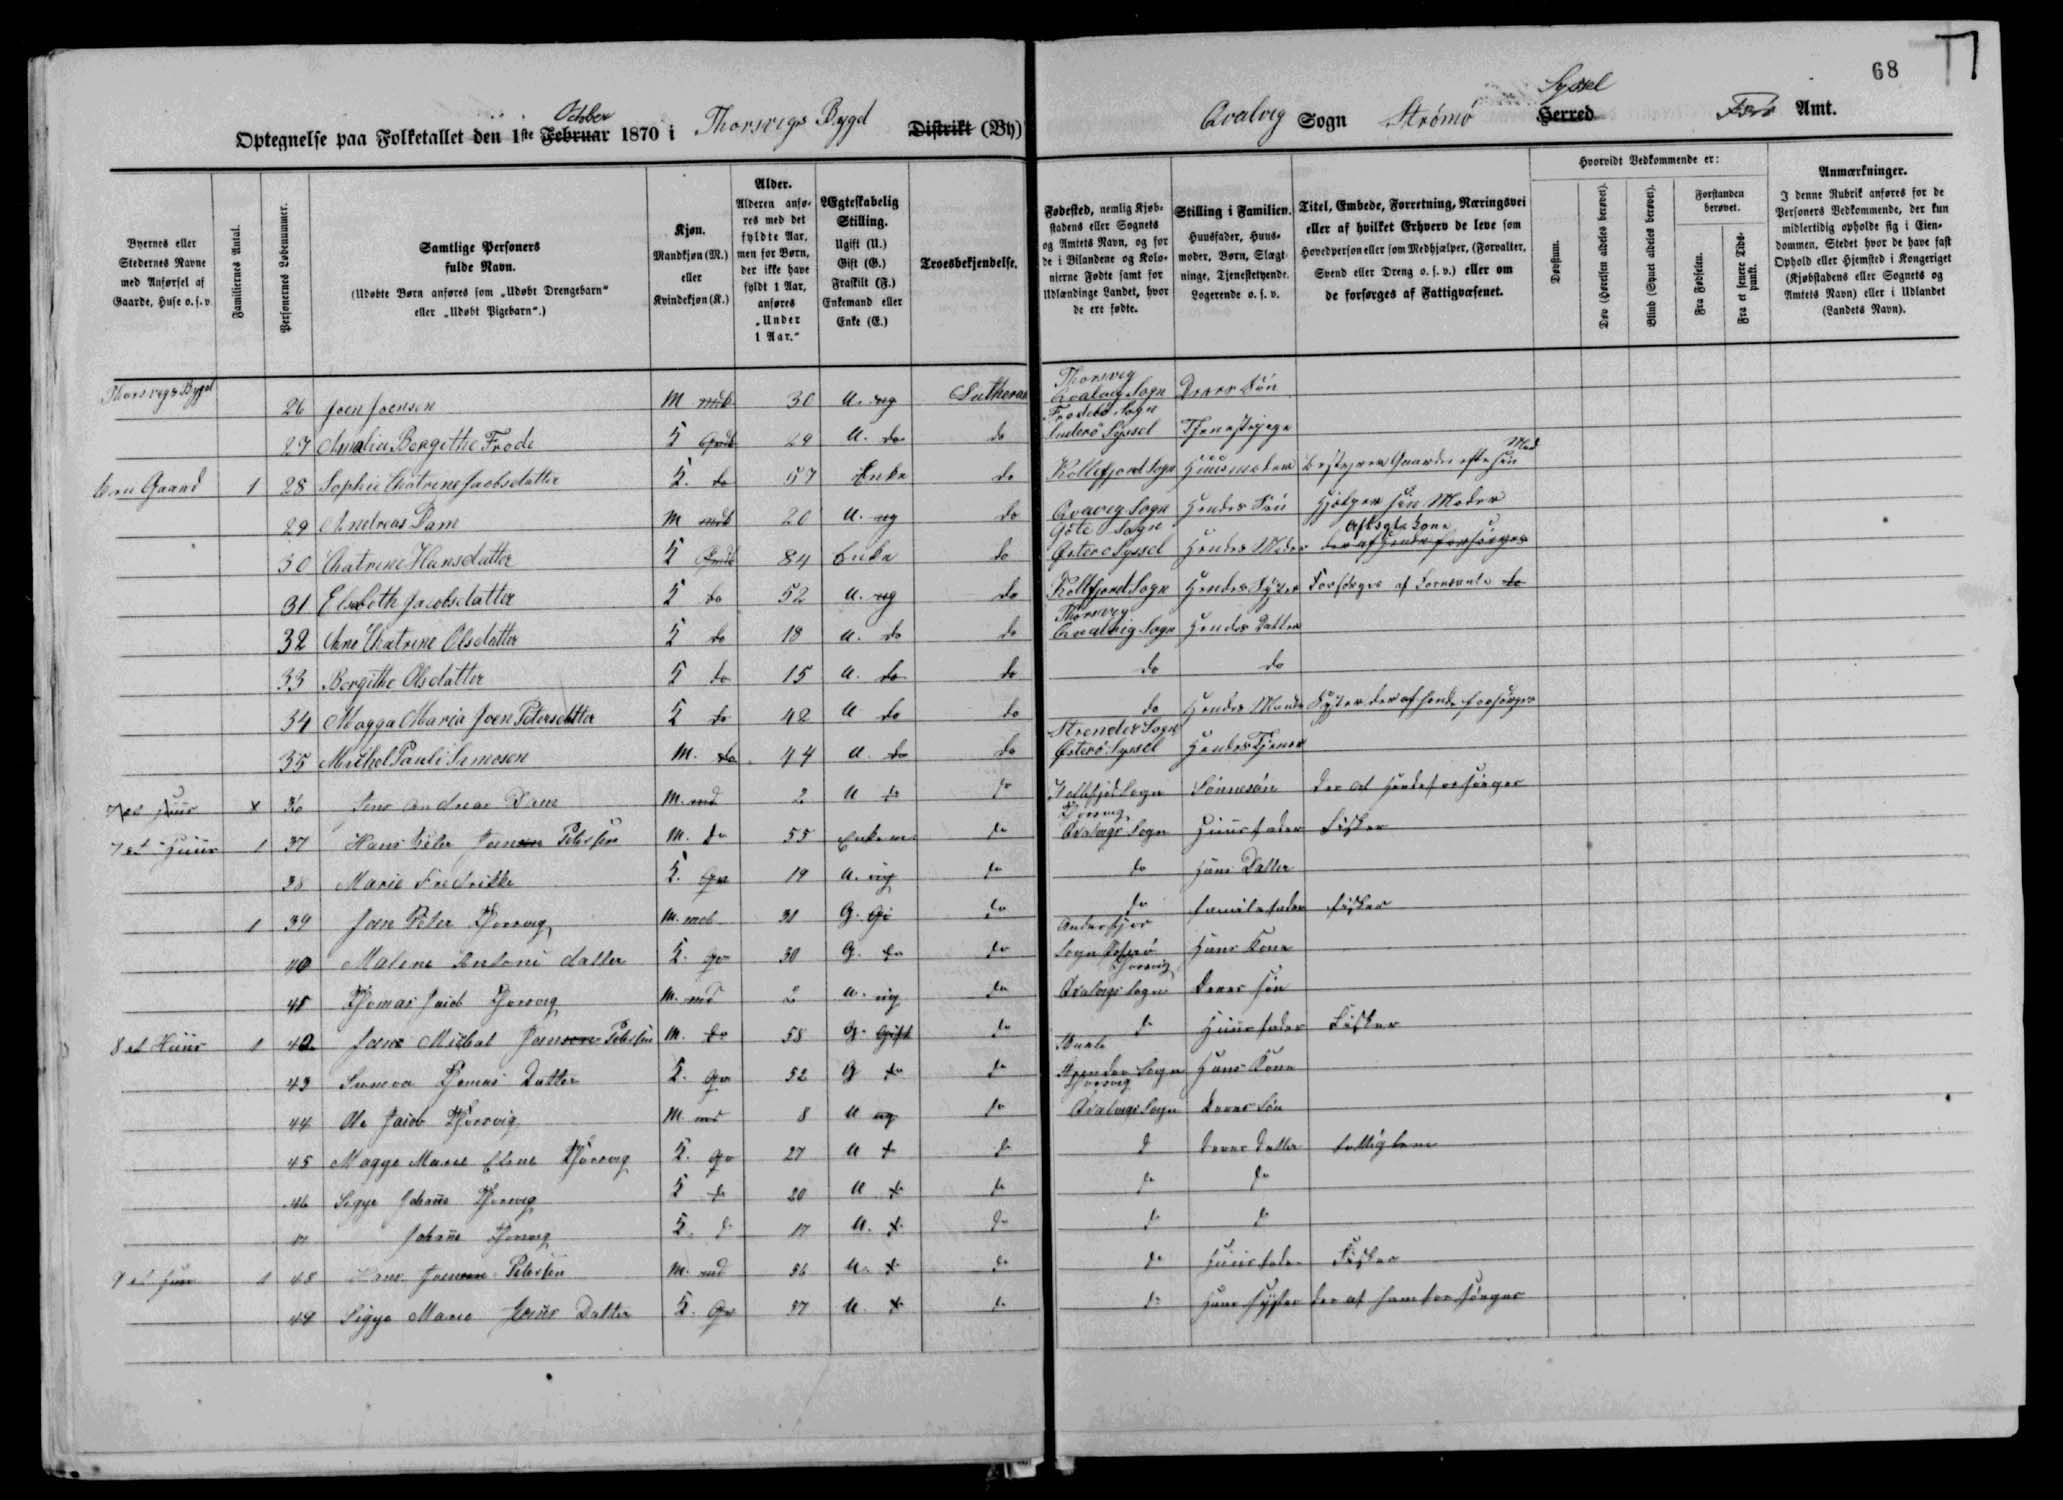 68
October
Syssel
Optegnelse paa Folketallet den 1ste Februar 1870 i Thorsvigs Bygd Distrikt (By) Qvalvig Sogn Strømø Herred Færø Amt.
Byernes eller Stedernes Navne med Anførsel af Gaarde, Huse o. s. v.
Familiernes Antal.
Personernes Løbenummer.
Samtlige Personers fulde Navn.
(Udøbte Børn anføres som „Udøbt Drengebarn“ eller „Udøbt Pigebarn“.)
Kjøn. Mandkjøn (M.) eller Kvindekjøn (K.)
Alder. Alderen anføres med det fyldte Aar, men for Børn, der ikke have fyldt 1 Aar, anføres „Under 1 Aar.“
Ægteskabelig Stilling. Ugift (U.) Gift (G.) Fraskilt (F.) Enkemand eller Enke (E.)
Troesbekjendelse.
Fødested, nemlig Kjøbstadens eller Sognets og Amtets Navn, og for de i Bilandene og Kolonierne Fødte samt for Udlændinge Landet, hvor de ere fødte.
Stilling i Familien. Huusfader, Huusmoder, Børn, Slægtninge, Tjenestetyende, Logerende o. s. v.
Titel, Embede, Forretning, Næringsvei eller af hvilket Erhverv de leve som Hovedperson eller som Medhjælper, (Forvalter, Svend eller Dreng o. s. v.) eller om de forsørges af Fattigvæsenet.
Hvorvidt Vedkommende er:
Døvstum.
Døv (Hørelsen aldeles berøvet).
Blind (Synet aldeles berøvet).
Forstanden berøvet.
Fra Fødselen.
Fra et senere Tidspunkt.
Anmærkninger.
I denne Rubrik anføres for de Personers Vedkommende, der kun midlertidig opholde sig i Eiendommen, Stedet hvor de have fast Ophold eller Hjemsted i Kongeriget (Kjøbstadens eller Sognets og Amtets Navn) eller i Udlandet (Landets Navn).
Thorsvigs Bygd 26 Joen Joensen M 30 U. ug Lutheran Thorsvig Qvalvig Sogn Deres Søn
27 Amalie Bergithe Frode K 29 U. do do Sogn Syssel Tjenestepige
Gaard 1 28 Sophie Chatrine Jacobsdatter K. do 57 Enke do Kollefjord Sogn Huusmoder Bestyrer Gaarden efter sin Mand
29 Andreas Dam M 20 U. ug do Qvavig Sogn Hendes Søn Hjelper sin Moder
30 Chatrine Hansdatter K 84 Enke do Göte Sogn Østerø Syssel Hendes Moder Aftægts Kone der af hende forsørges
31 Elsebeth Jacobsdatter K do 52 U. ug do Kollfjord Sogn Hendes Syster Forsørges af do
32 Ane Chatrine Olsdatter K do 18 U. do do Thorsvig Qvalvig Sogn Hendes Datter
33 Bergithe Olsdatter K do 15 U. do do do do
34 Magga Maria Joen Petersdatter K do 42 U do do do Hendes Mands Syster der af hende forsørges
35 Michel Pauli Simosen M. do 44 U. do do Strender Sogn Østerø Syssel Hendes Tjener
x 36 Jens Andreas Dam M. md 2 U do do Kollefjord Sogn Sønnesøn der af hende forsørges
7et Huus 1 37 Hans Peter Joensen Petersen M. do 55 Enkem do Thorsvig Qvalvigs Sogn Huusfader Fisker
38 Marie Fredrikke K. Qv 19 U. ug do do Hans Datter
1 39 Joen Peter Thorsvig M. md 31 G. Gi do do familiefader fisker
40 Malene Antoni datter K. Qv 30 G. do do Anderfjor Sogn Østerø Hans Kone
41 Thomas Jacob Thorsvig M. md 2 U. ug do Thorsvig Qvalvigs Sogn Deres søn
8et Huus 1 42 Joen Michal Joensen Petersen M. do 58 G. Gift do do Huusfader Fisker
43 Suneva Thomas Datter K. Qv 52 G do do Strender Sogn Hans Kone
44 Ole Jacob Thorsvig M. md 8 U ug do Thorsvig Qvalvigs Sogn Deres Søn
45 Magge Marie Elene Thorsvig K. Qv 27 U do do do Deres Datter fattiglem
46 Sigge Johanne Thorsvig K do 20 U do do do do
47 Johanne Thorsvig K. do 17 U. do do do do
9et Huus 1 48 Hans Joensen Petersen M. md 56 U. do do do Huusfader Fisker
49 Sigge Marie Datter K. Qv 37 U do do do Hans Syster der af ham forsørges